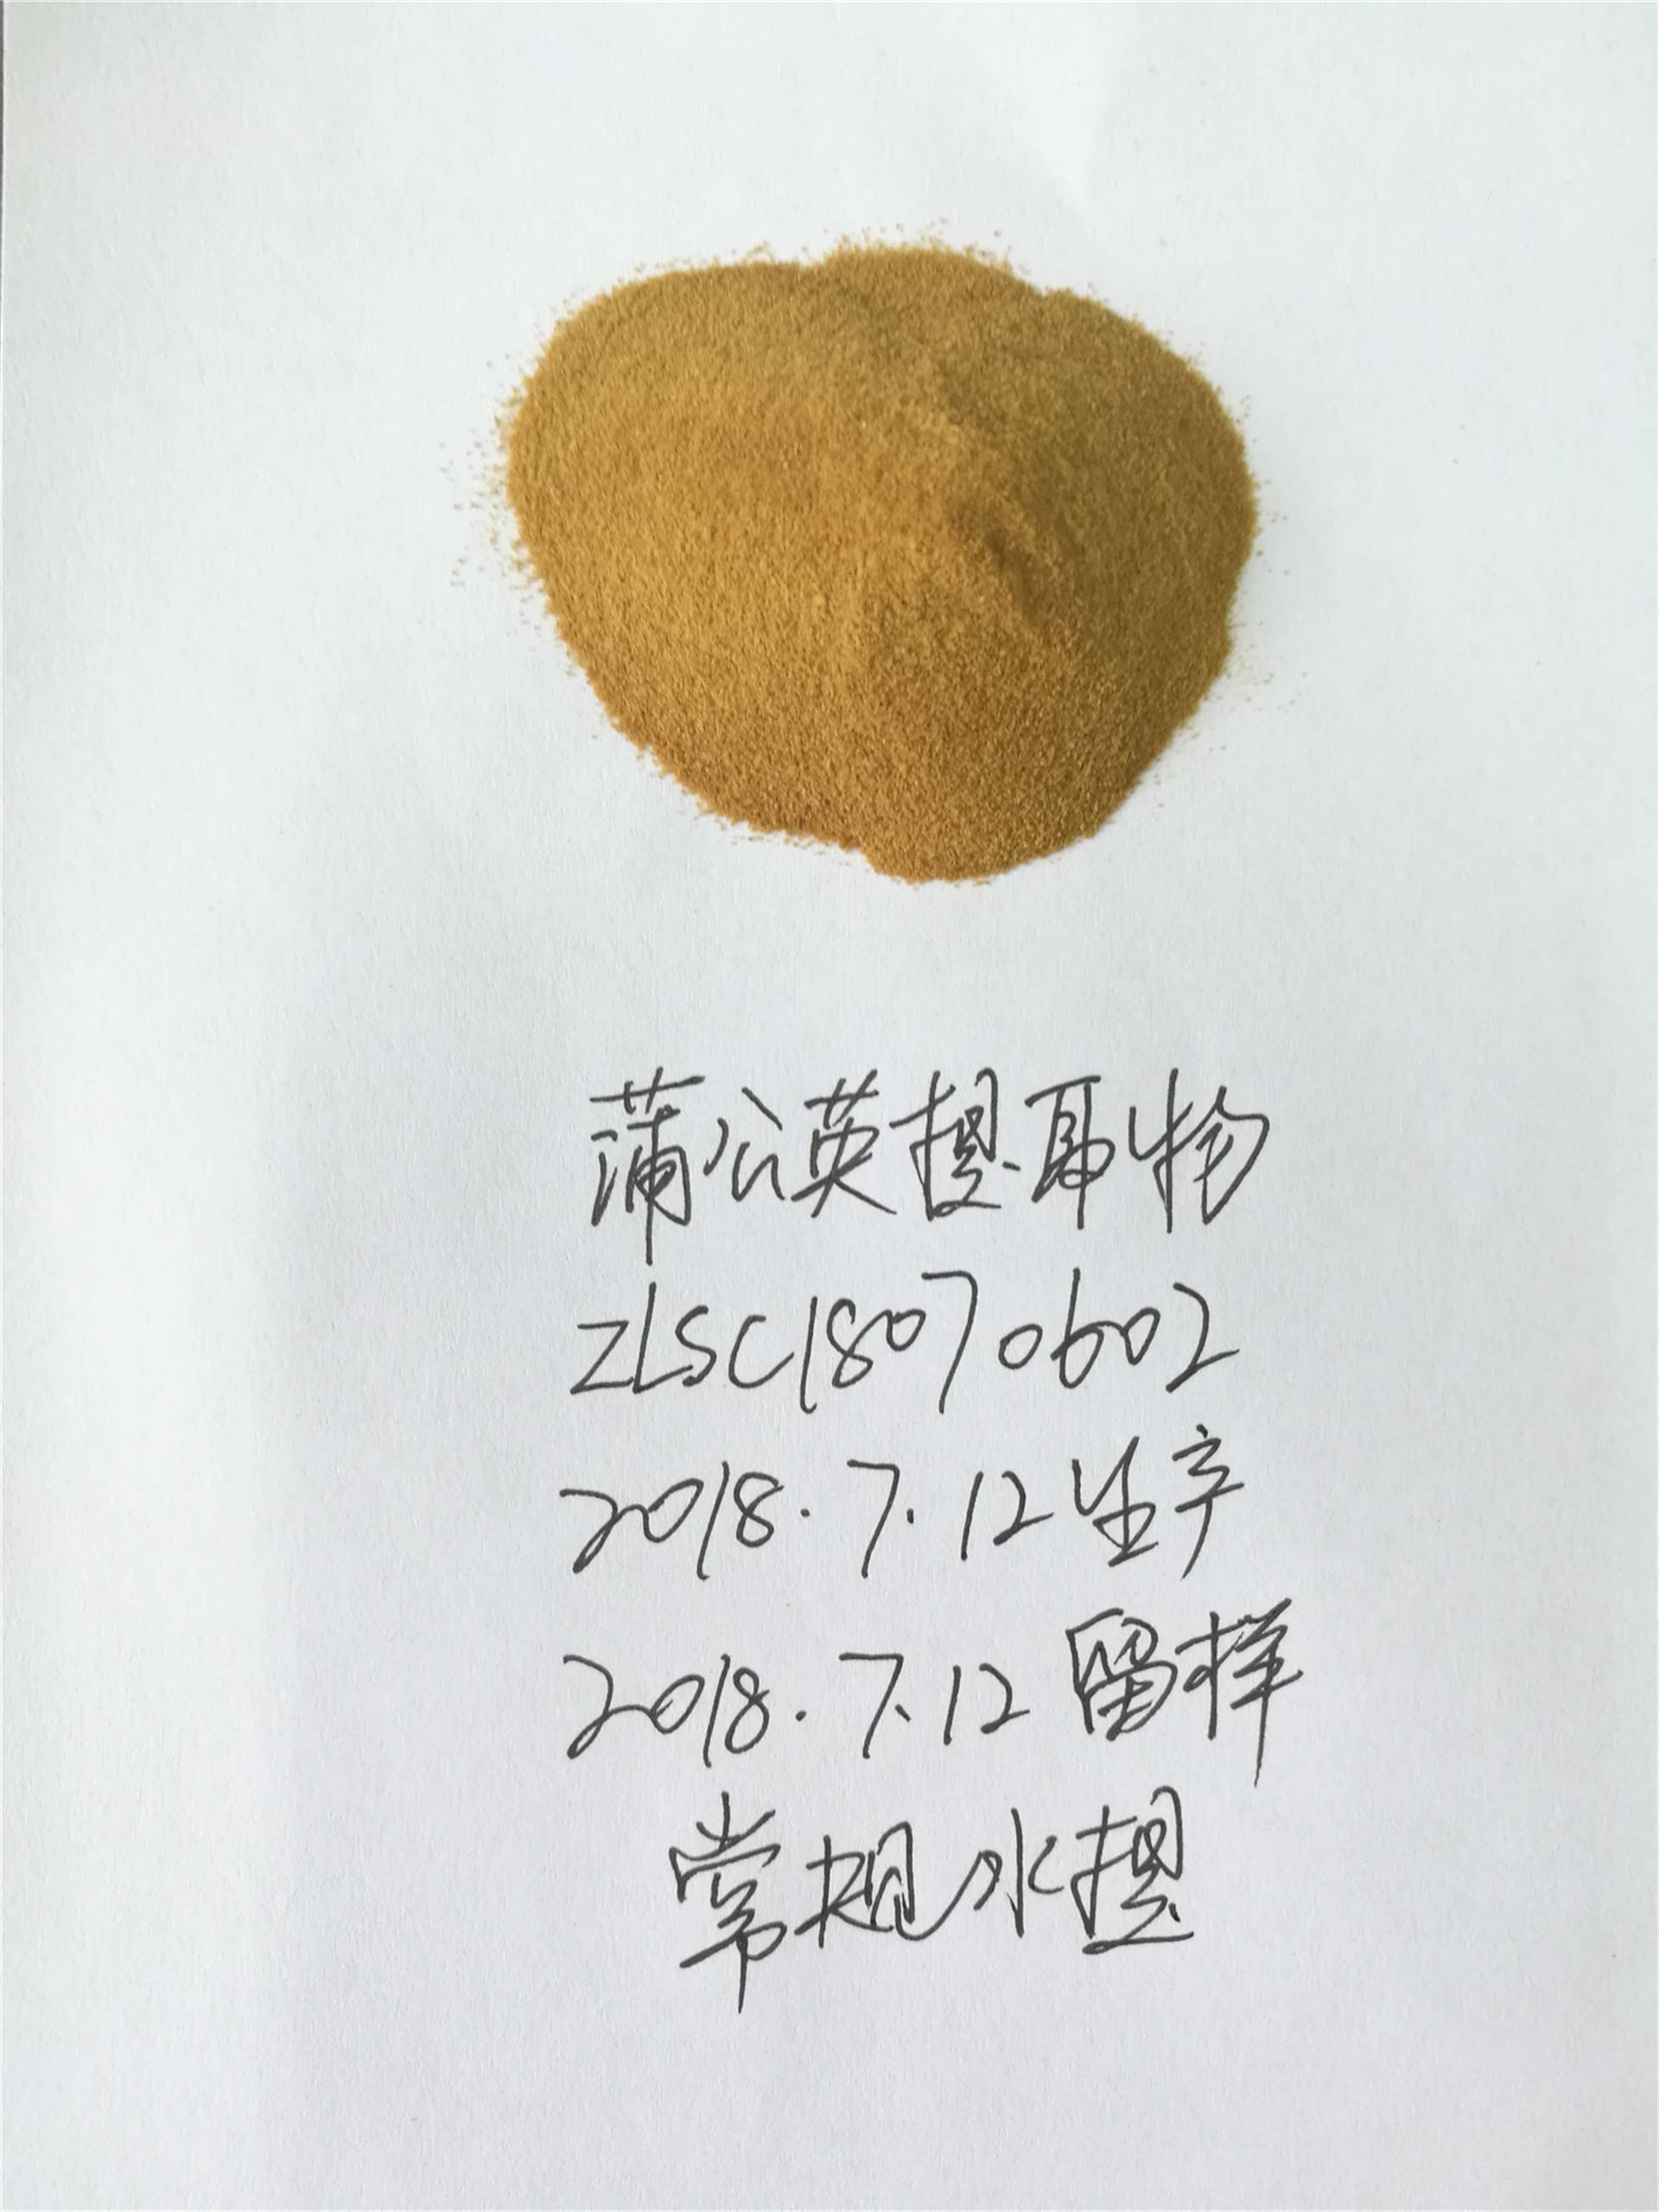 蒲公英提取物
ZLSC18070602
2018.7.12生产
2018.7.12留样
常规水提